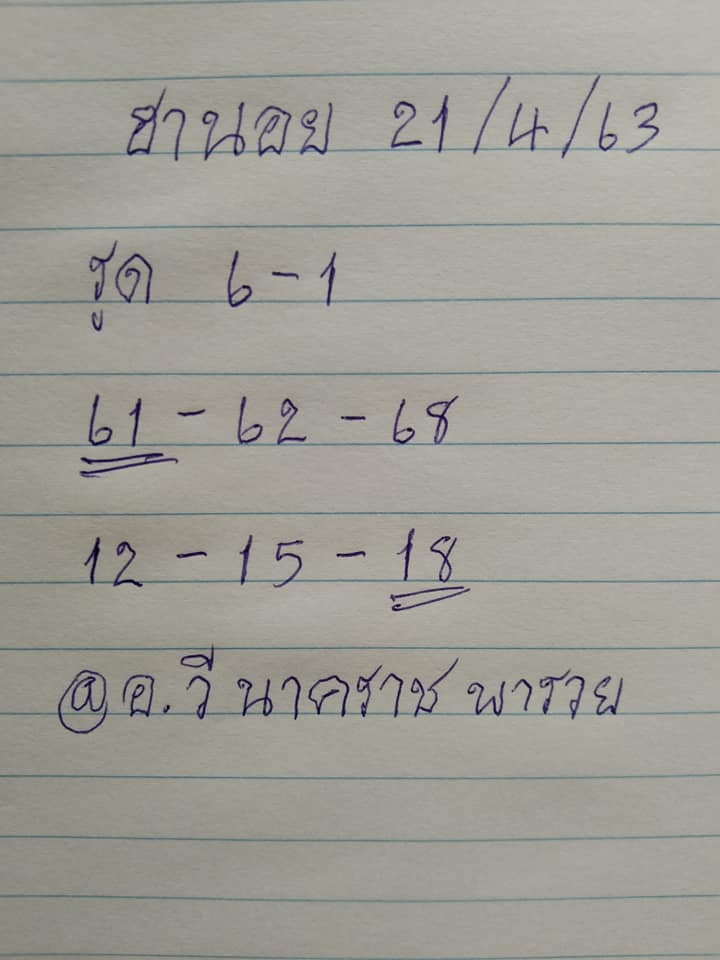 ฮานอย 21/4/63
รูด 6-1
61-62-68
12-15-18
@อ.วี นาคราช พารวย